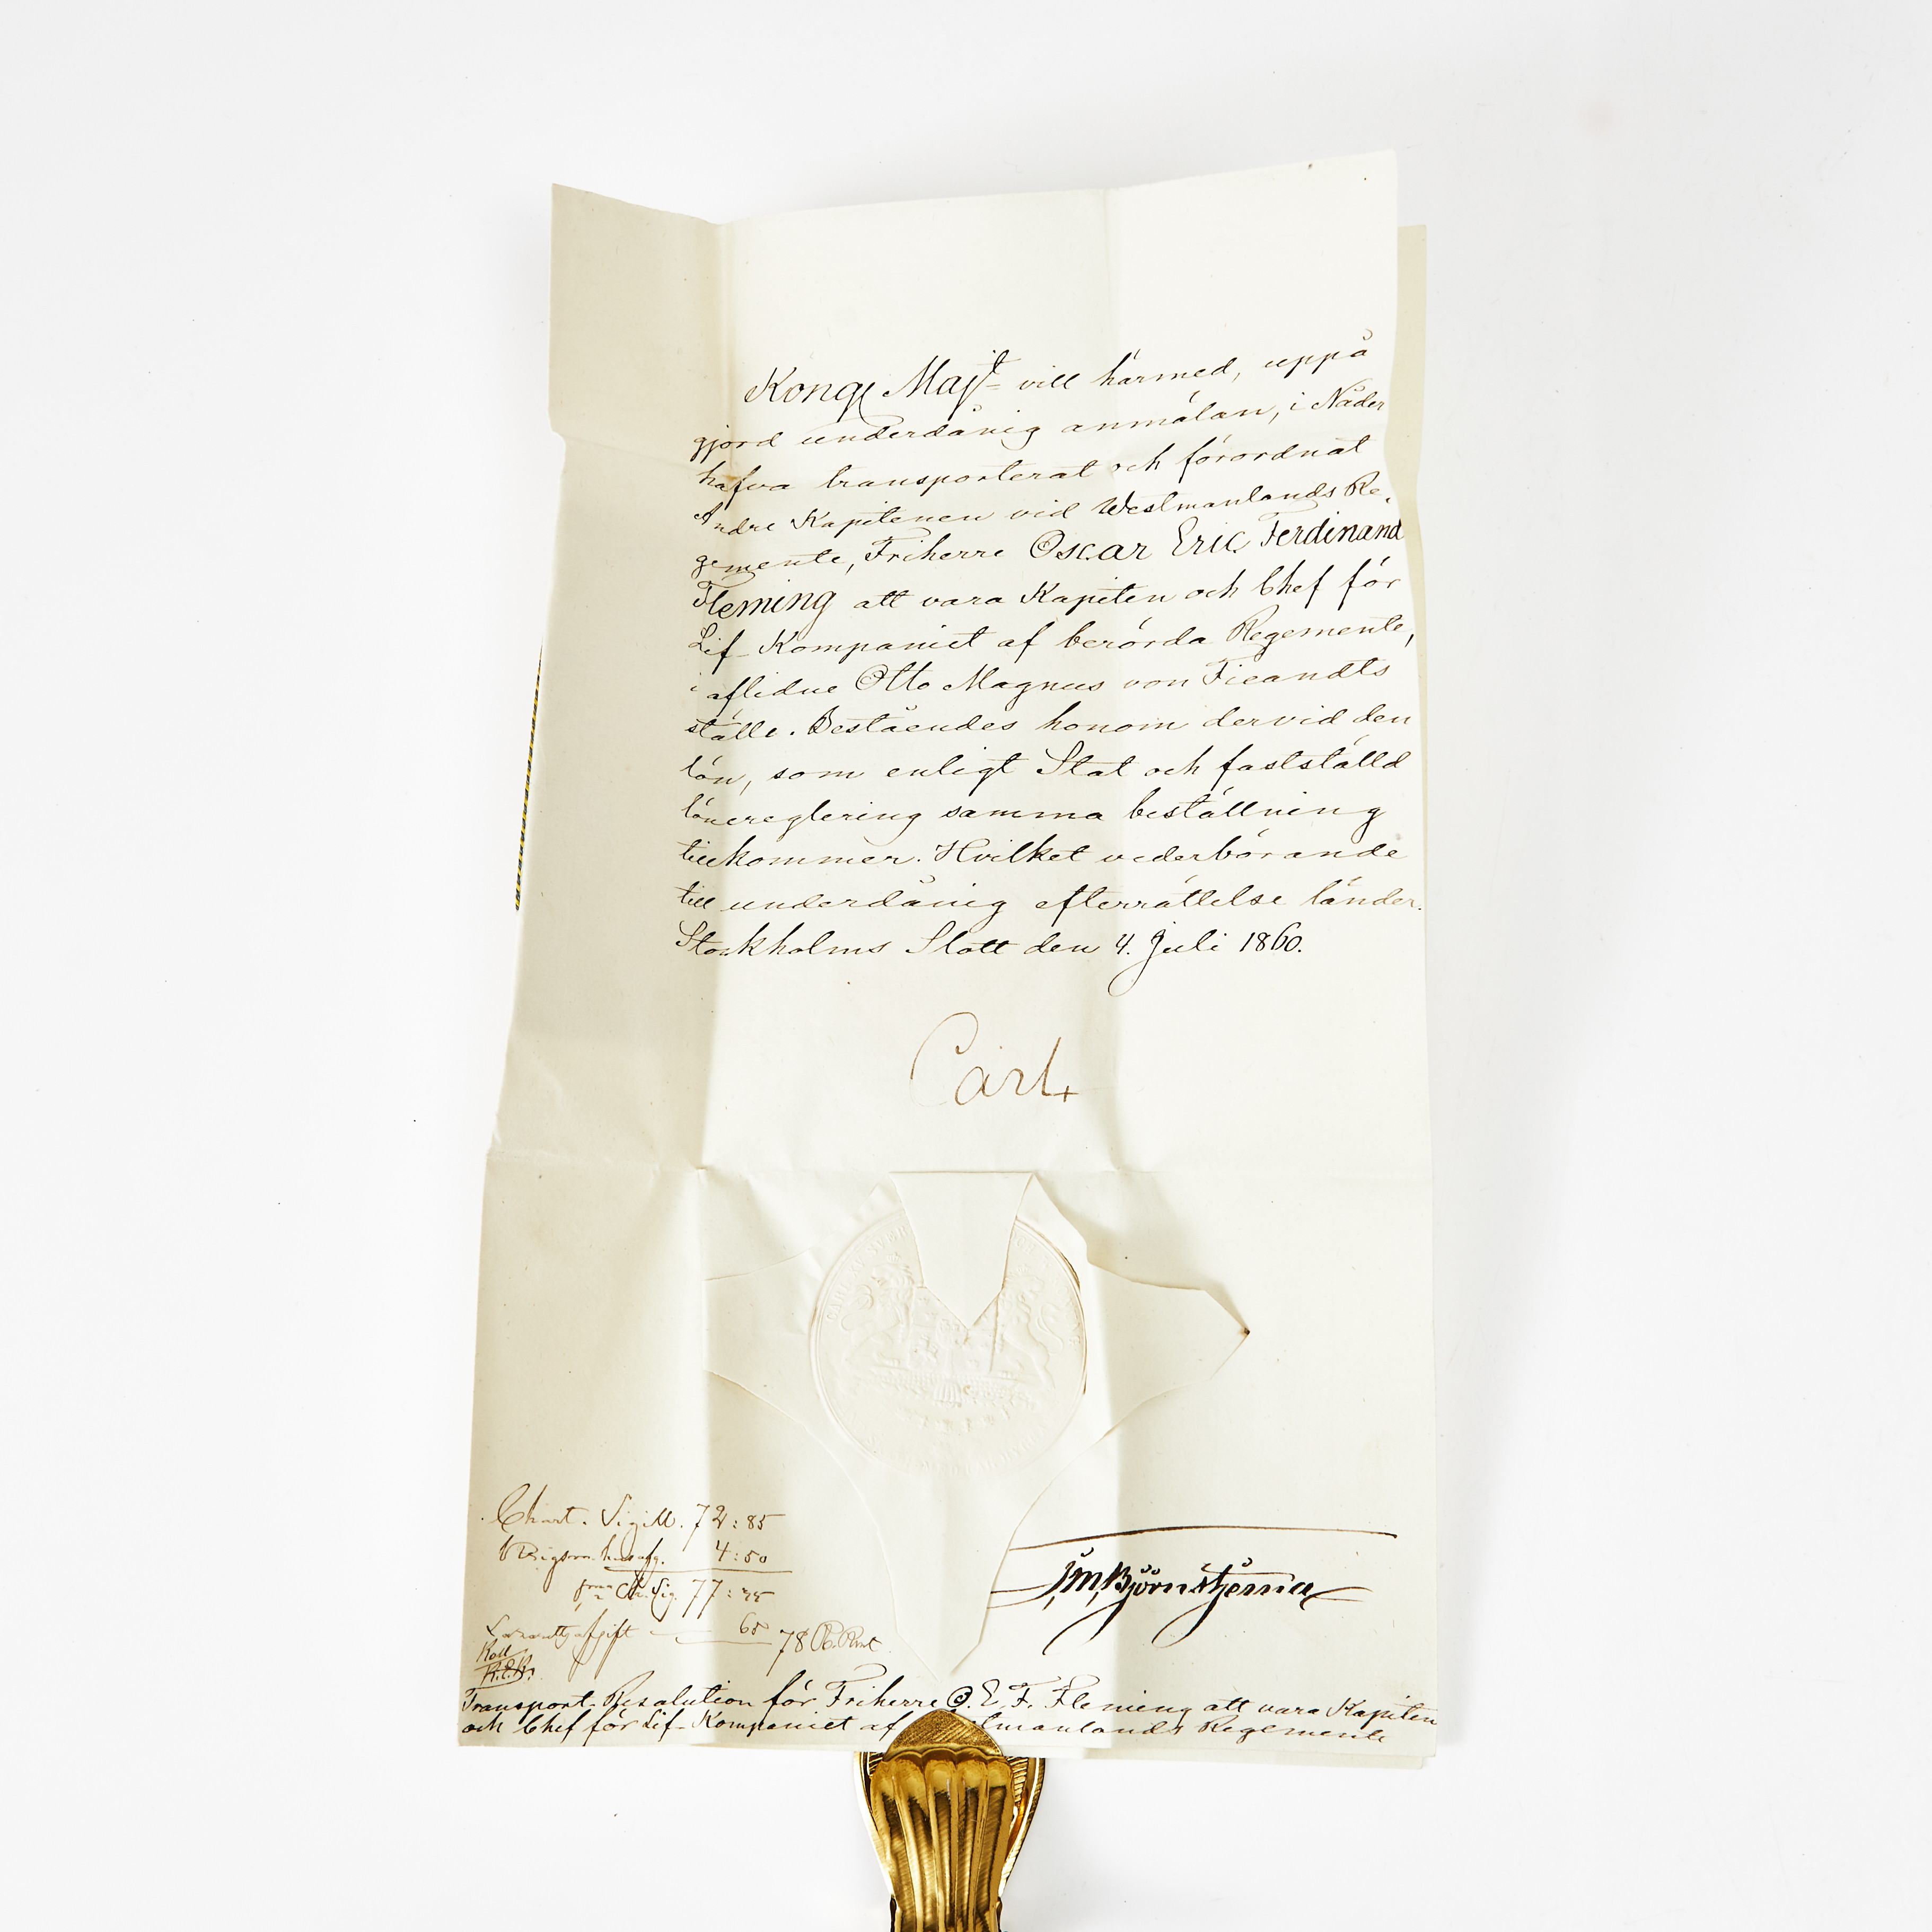 Kongl Majt vill härmed, uppå
gjord underdånig anmälan, i Nåder
hafva transporterat och förordnat
Andre Kapitenen vid Westmanlands Re-
gemente, Friherre Oscar Eric Ferdinand
Fleming att vara Kapiten och Chef för
Lif-Kompaniet af berörda Regemente,
i aflidne Otto Magnus von Fieandts
ställe. Beståendes honom dervid den
lön, som enligt Stat och fastställd
lönereglering samma beställning
tillkommer. Hvilket vederbörande
till underdånig efterrättelse länder.
Stockholms Slott den 4. Juli 1860.
Carl
Chart. Sigill. 72:85
4:50
Ch. Sig. 77:35
65
78
J, M, Björnstjerna
Transport-Resolution för Friherre O. E. F. Fleming att vara Kapiten
och Chef för Lif-Kompaniet af lmanlands Regemente